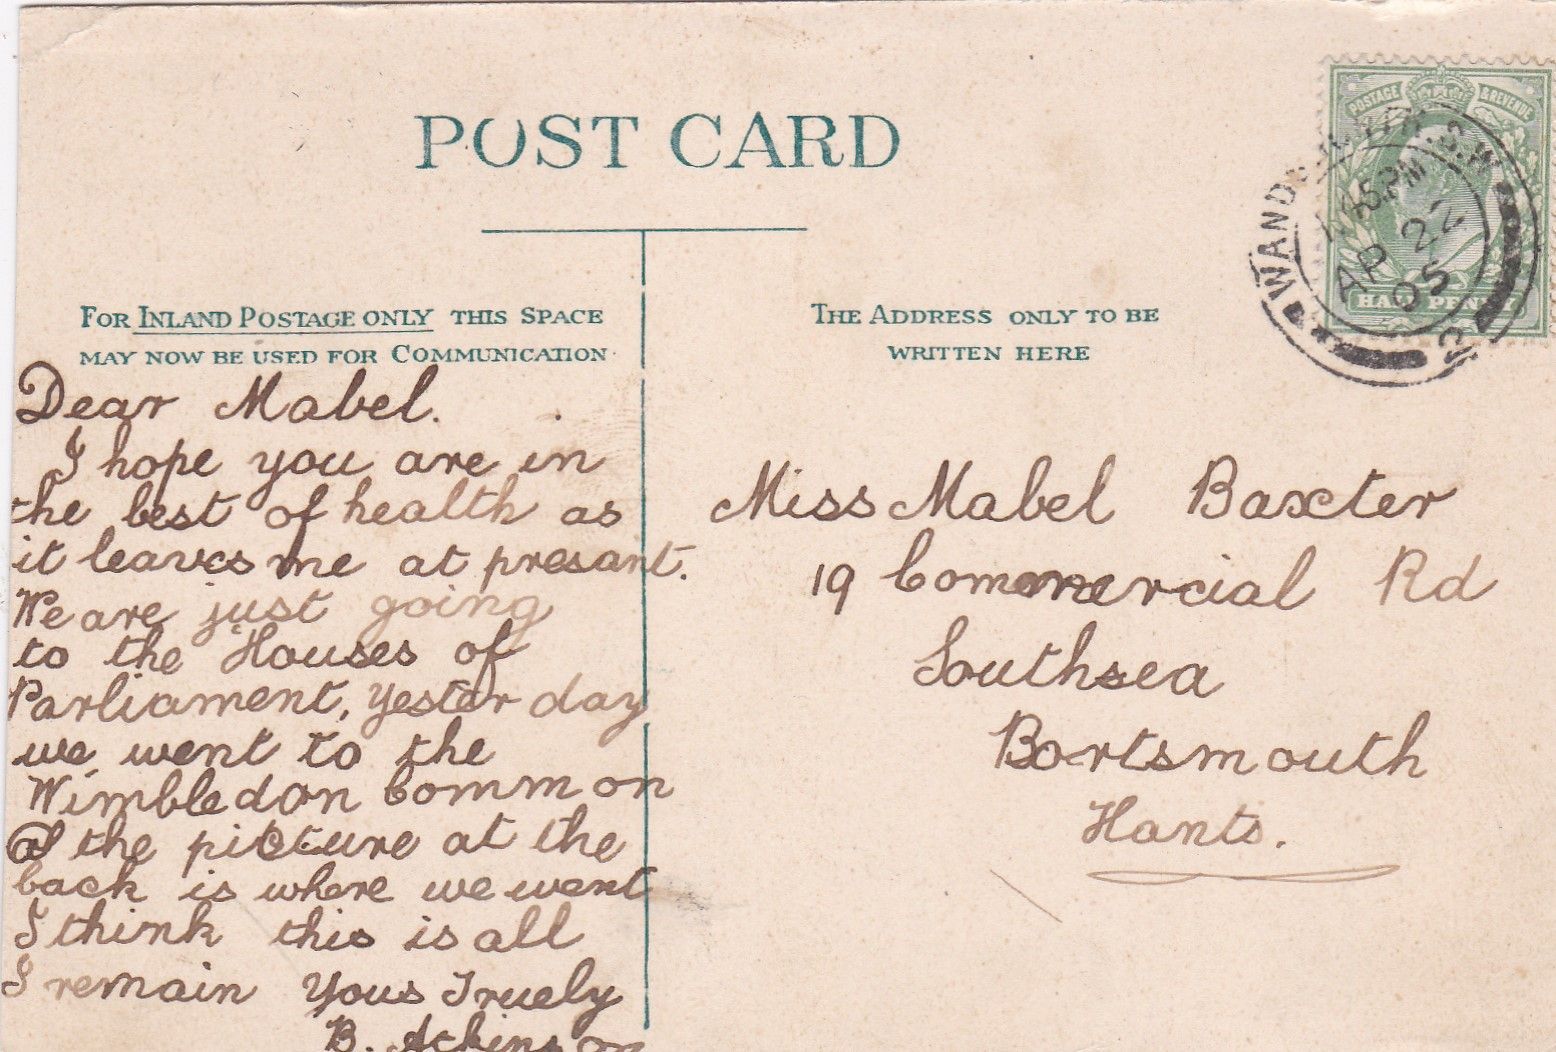 POST CARD
FOR INLAND POSTAGE ONLY THIS SPACE
MAY NOW BE USED FOR COMMUNICATION
THE ADDRESS ONLY TO BE
WRITTEN HERE
POSTAGE & REVENUE
HALFPENNY
S.W.
45 PM
AP 22
05
Dear Mabel.
I hope you are in
the best of health as
it leaves me at presant.
We are just going
to the Houses of
Parliament, yester day
we went to the
Wimbledon Common
the picture at the
back is where we went
I think this is all
I remain Yous Truely
B. Atkinson
Miss Mabel Baxter
19 Commercial Rd
Southsea
Portsmouth
Hants.